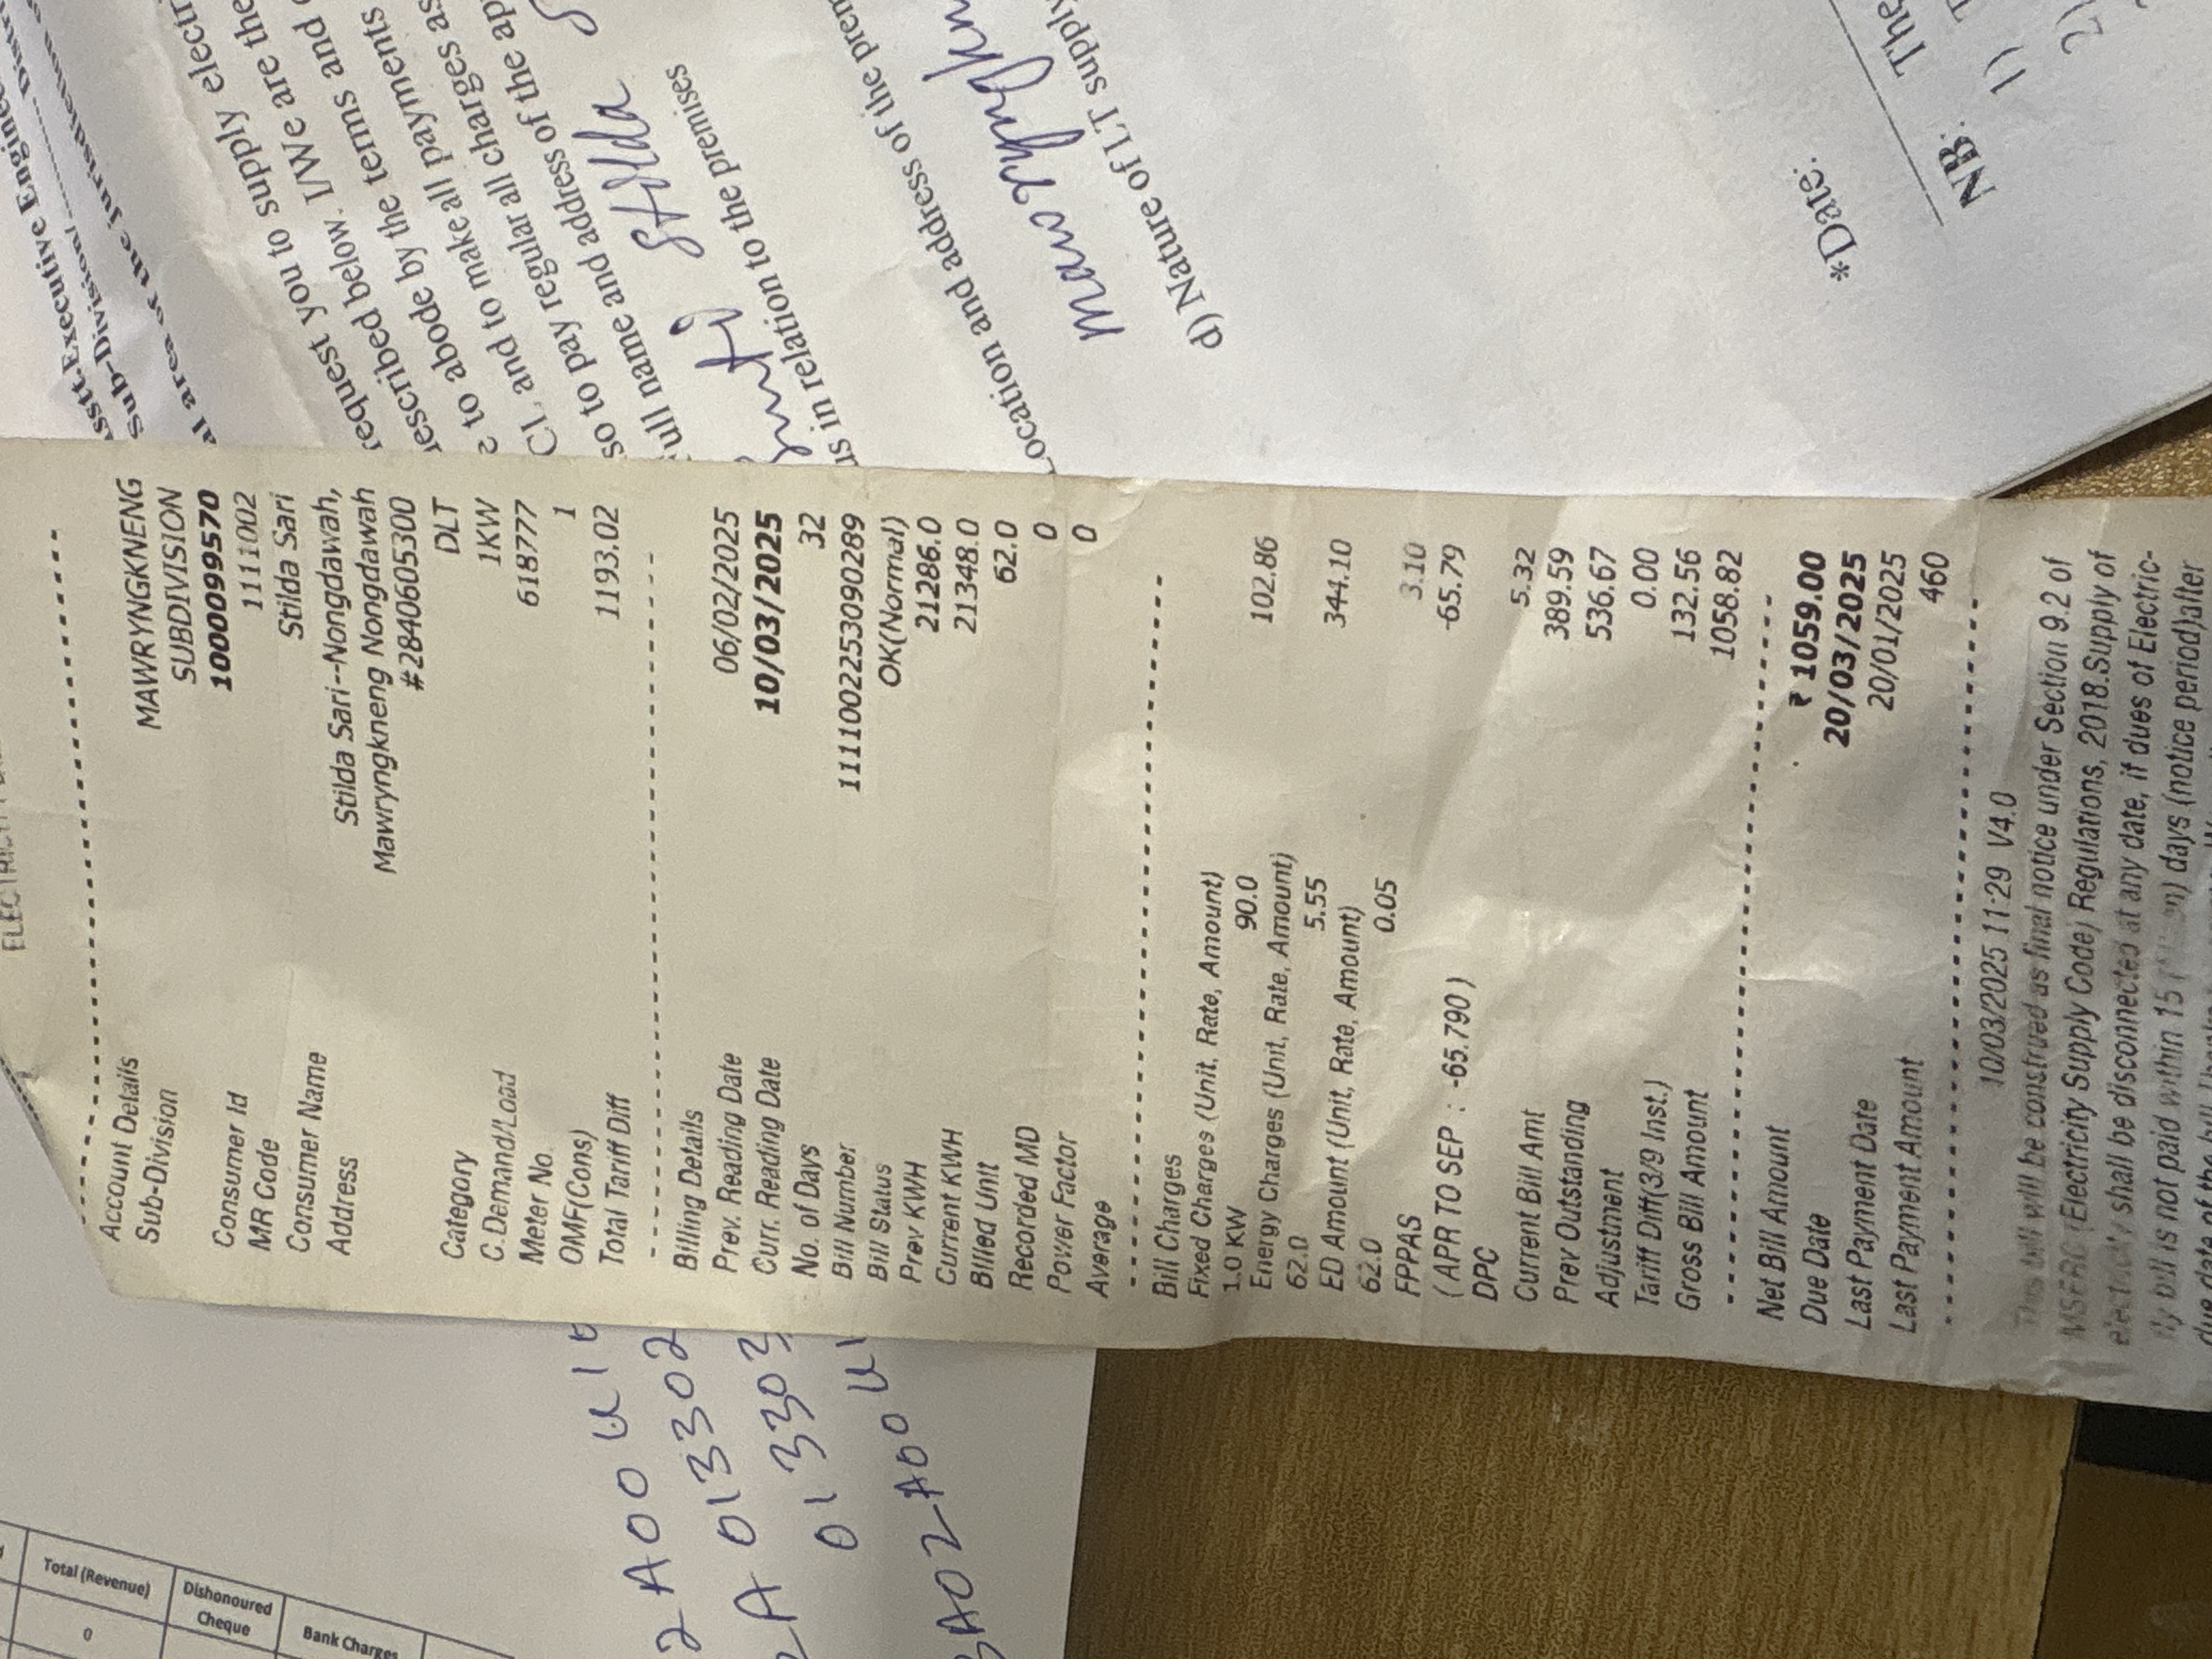 Account Details
Sub-Division MAWRYNGKNENG
SUBDIVISION
Consumer Id 10000999570
MR Code 1111002
Consumer Name Stilda Sari
Address Stilda Sari--Nongdawah,
Mawryngkneng Nongdawah
#2840605300
Category DLT
C.Demand/Load 1KW
Meter No. 618777
OMF(Cons) 1
Total Tariff Diff 1193.02
Billing Details
Prev. Reading Date 06/02/2025
Curr. Reading Date 10/03/2025
No. of Days 32
Bill Number 1111002253090289
Bill Status OK(Normal)
Prev KWH 21286.0
Current KWH 21348.0
Billed Unit 62.0
Recorded MD 0
Power Factor 0
Average
Bill Charges
Fixed Charges (Unit, Rate, Amount)
1.0 KW 90.0 102.86
Energy Charges (Unit, Rate, Amount)
62.0 5.55 344.10
ED Amount (Unit, Rate, Amount)
62.0 0.05 3.10
FPPAS -65.79
( APR TO SEP : -65.790 )
DPC 5.32
Current Bill Amt 389.59
Prev Outstanding 536.67
Adjustment 0.00
Tariff Diff(3/9 Inst.) 132.56
Gross Bill Amount 1058.82
Net Bill Amount ₹ 1059.00
Due Date 20/03/2025
Last Payment Date 20/01/2025
Last Payment Amount 460
10/03/2025 11:29 V4.0
This bill will be construed as final notice under Section 9.2 of
MSERC (Electricity Supply Code) Regulations, 2018.Supply of
electricity shall be disconnected at any date, if dues of Electric-
ity bill is not paid within 15 days (notice period)after
due date of the bill
Asstt.Executive Engineer
Sub-Divisional ........
al area of the jurisdiction
request you to supply electri
below. I/We are the
by the terms and
to make all payments
CL and to pay regular all charges as
name and address of the ap
Smti Stilda
us in relation to the premises
Location and address of the prem
d) Nature of LT supply
*Date:
The
NB: 1)
2)
2 A00
2 A 013302
013303
A02 A00
Total (Revenue)
Dishonoured
Cheque
Bank Charges
0